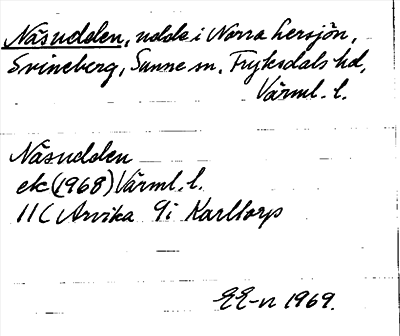 Näsudden, udde i Norra Lersjön,
Svineberg, Sunne sn, Fryksdals hd,
Värml. l.
Näsudden
ek (1968) Värml. l.
11C Arvika 9i Karltorp
EE-n 1969.